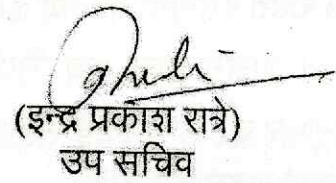 (इन्द्र प्रकाश रात्रे)
उप सचिव